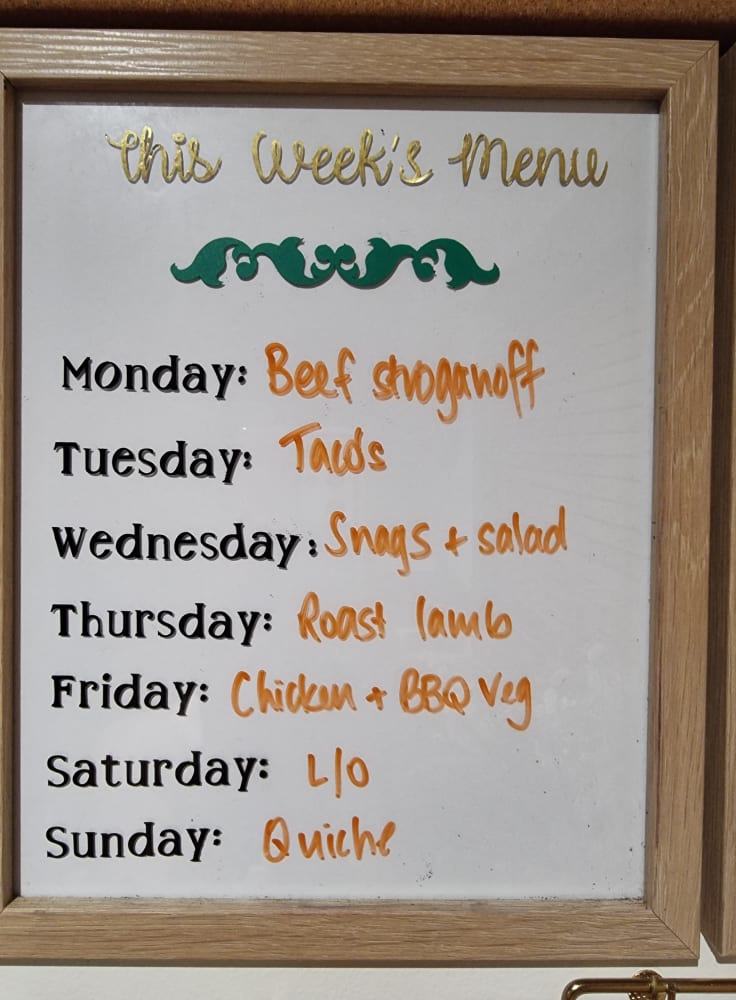 This Week's Menu
Monday: Beef stroganoff
Tuesday: Tacos
Wednesday: Snags + salad
Thursday: Roast lamb
Friday: Chicken + BBQ Veg
Saturday: L/O
Sunday: Quiche